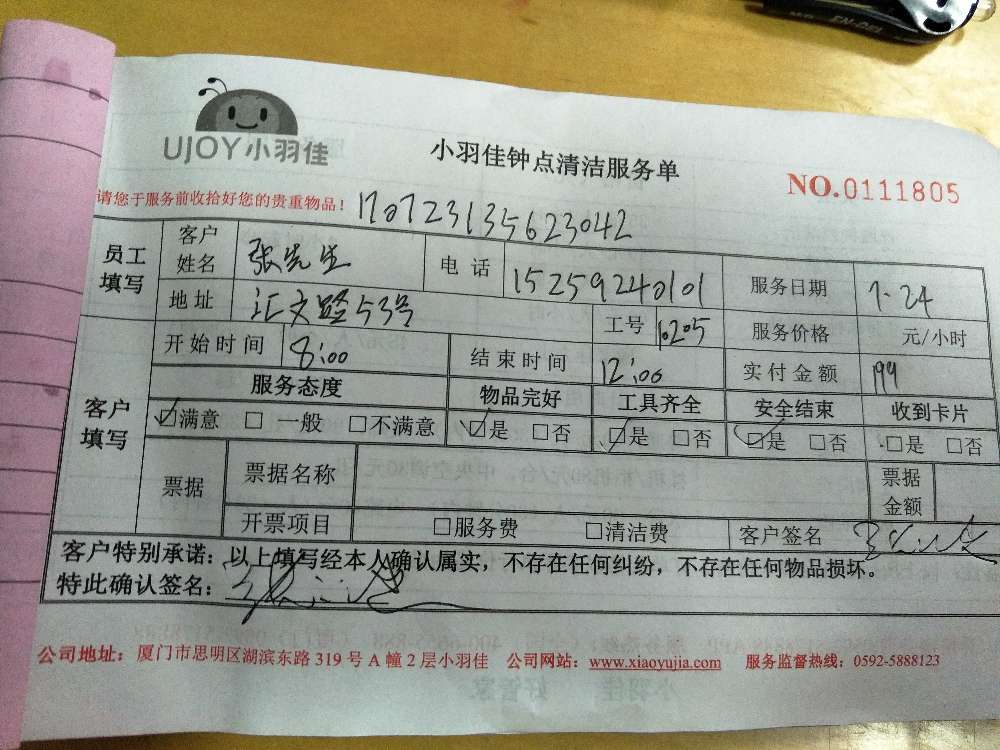 UJOY小羽佳
小羽佳钟点清洁服务单
NO.0111805
请您于服务前收拾好您的贵重物品!
170723135623042
员工填写 客户姓名 张先生 电话 15259240101 服务日期 7.24
地址 汇文路53号 工号 16205 服务价格 元/小时
客户填写 开始时间 8:00 结束时间 12:00 实付金额 199
服务态度 物品完好 工具齐全 安全结束 收到卡片
☑满意 □一般 □不满意 ☑是 □否 ☑是 □否 ☑是 □否 □是 □否
票据 票据名称 票据金额
开票项目 □服务费 □清洁费 客户签名
客户特别承诺:以上填写经本人确认属实,不存在任何纠纷,不存在任何物品损坏。
特此确认签名:
公司地址:厦门市思明区湖滨东路 319 号 A 幢 2 层小羽佳 公司网站:www.xiaoyujia.com 服务监督热线:0592-5888123